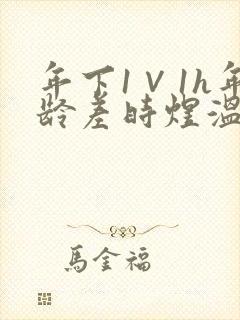 年下1∨1h年
龄差時煌溫
馬金福